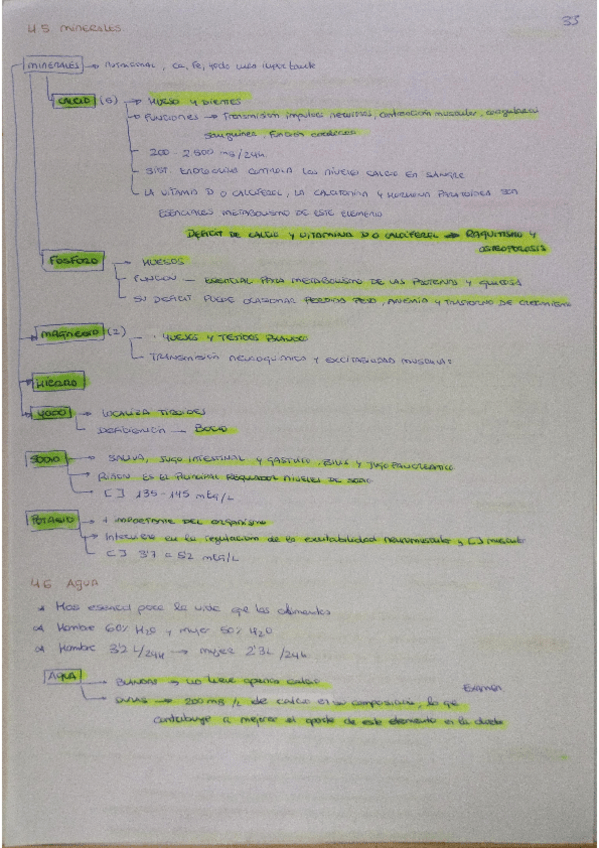 33
4.5 MINERALES
MINERALES → NUTRICIONAL, Ca, Fe, yodo más importante
CALCIO (5) → HUESO Y DIENTES
→ FUNCIONES → Transmisión impulsos nerviosos, contracción muscular, coagulación
sanguínea, función cardiaca
200 - 2.500 mg/24h
SIST. ENDOCRINO CONTROLA LOS NIVELES CALCIO EN SANGRE
LA VITAMINA D O CALCIFEROL, LA CALCITONINA Y HORMONA PARATOIDEA SON
ESENCIALES METABOLISMO DE ESTE ELEMENTO
DÉFICIT DE CALCIO Y VITAMINA D O CALCIFEROL → RAQUITISMO Y
OSTEOPOROSIS
FOSFORO → HUESOS
FUNCION → ESENCIAL PARA METABOLISMO DE LAS PROTEINAS Y GLUCOSA
SU DEFICIT PUEDE OCASIONAR PERDIDA PESO, ANEMIA Y TRASTORNO DE CRECIMIENTO
MAGNESIO (2) → HUESOS Y TEJIDOS BLANDO
TRANSMISIÓN NEUROQUIMICA Y EXCITABILIDAD MUSCULAR
HIERRO
YODO → LOCALIZA TIROIDES
DEFICIENCIA → BOCIO
SODIO → SALIVA, JUGO INTESTINAL Y GASTRICO, BILIS Y JUGO PANCREATICO
→ RIÑON ES EL PRINCIPAL REGULADOR NIVELES DE SODIO
→ [ ] 135 - 145 mEq/L
POTASIO → + IMPORTANTE DEL ORGANISMO
→ Interviene en la regulación de la excitabilidad neuromuscular y [ ]
→ [ ] 3'7 a 5'2 mEq/L
4.6 AGUA
Más esencial para la vida que los alimentos
Hombre 60% H2O y mujer 50% H2O
Hombre 3'2 L/24h → mujer 2'3L/24h
AGUA → BLANDAS → no lleve aporte calcio
Examen
DURAS → 200 mg/L de calcio en su composición, lo que
contribuye a mejorar el aporte de este elemento en la dieta